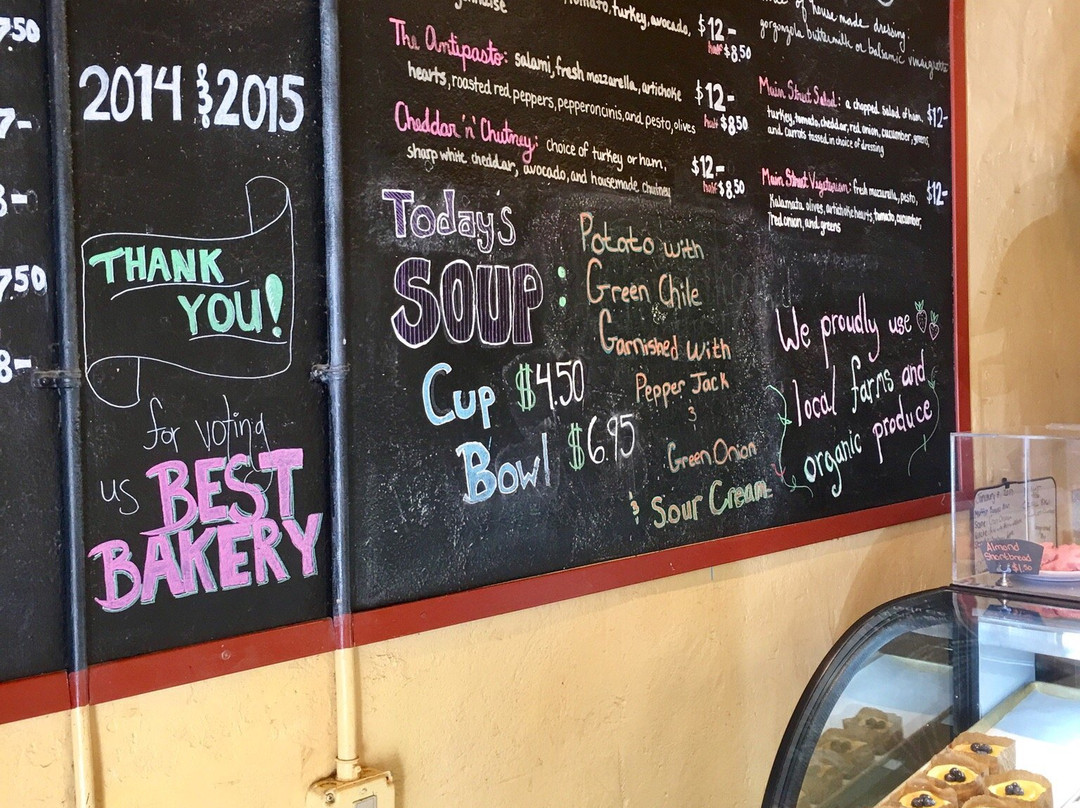 7.50
7-
8-
7.50
8-
2014 & 2015
THANK
YOU!
for voting
us BEST
BAKERY
tomato, turkey, avocado,
$12-
half $8.50
The Antipasto: salami, fresh mozzarella, artichoke
hearts, roasted red peppers, pepperoncinis, and pesto, olives
$12-
half $8.50
Cheddar 'n' Chutney: choice of turkey or ham,
sharp white cheddar, avocado, and housemade chutney
$12-
half $8.50
Today's
SOUP:
Potato with
Green Chile
Garnished with
Pepper Jack
&
Green Onion
& Sour Cream
Cup $4.50
Bowl $6.95
of house made dressing:
gorgonzola buttermilk or balsamic vinaigrette
Main Street Salad: a chopped salad of ham, $12-
turkey, tomato, cheddar, red onion, cucumber, greens,
and carrots tossed in choice of dressing
Main Street Vegetarian: fresh mozzarella, pesto, $12-
Kalamata olives, artichoke hearts, tomato, cucumber,
red onion, and greens
We proudly use
local farms and
organic produce
Almond
Shortbread
$1.50